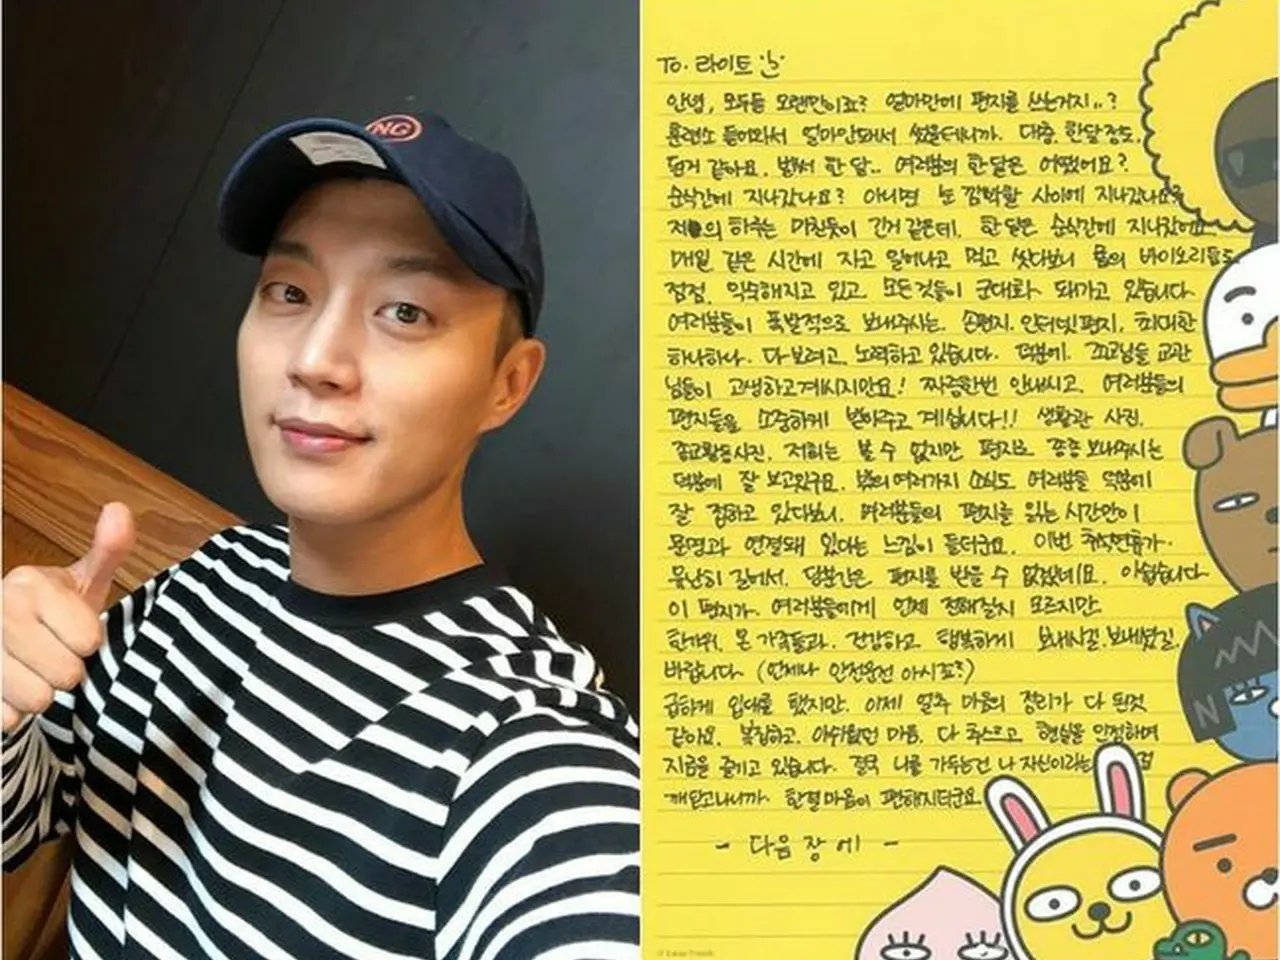 NG
To. 라이트
안녕, 모두들 오랜만이죠? 얼마만에 편지를 쓰는거지..?
훈련소 들어와서 얼마안돼서 썼을테니까. 대충 한달정도
된거 같아요. 벌써 한 달.. 여러분의 한달은 어땠어요?
순식간에 지나갔나요? 아니면 눈 깜빡할 사이에 지나갔나요?
저의 하루는 미친듯이 긴거 같은데, 한달은 순식간에 지나갔어요
매일 같은 시간에 자고 일어나고 먹고 씻다보니 몸의 바이오리듬도
점점 익숙해지고 있고 모든것들이 군대화 돼가고 있습니다
여러분들이 폭발적으로 보내주시는 손편지. 인터넷편지, 최대한
하나하나 다 보려고 노력하고 있습니다. 덕분에. 조교님들 교관
님들이 고생하고계시지만요! 짜증한번 안내시고 여러분들의
편지들을 소중하게 받아주고 계십니다!! 생활관 사진,
종교활동사진, 저희는 볼 수 없지만 편지로 종종 보내주시는
덕분에 잘 보고있구요. 밖의 여러가지 소식도 여러분들 덕분에
잘 접하고 있다보니. 여러분들의 편지를 읽는 시간만이
문명과 연결돼 있다는 느낌이 들더군요. 이번 추석연휴가
유난히 길어서. 당분간은 편지를 받을 수 없겠네요. 아쉽습니다
이 편지가 여러분들에게 언제 전해질지 모르지만
한가위, 온 가족들과. 건강하고 행복하게 보내시길. 보내셨길.
바랍니다 (언제나 안전운전 아시죠?)
급하게 입대를 했지만. 이제 얼추 마음의 정리가 다 된것
같아요. 복잡하고. 아쉬웠던 마음. 다 추스르고 현실을 인정하며
지금을 즐기고 있습니다. 결국 나를 가두는건 나 자신이라는 걸
깨닫고나니까 한결 마음이 편해지더군요
- 다음 장 에 -